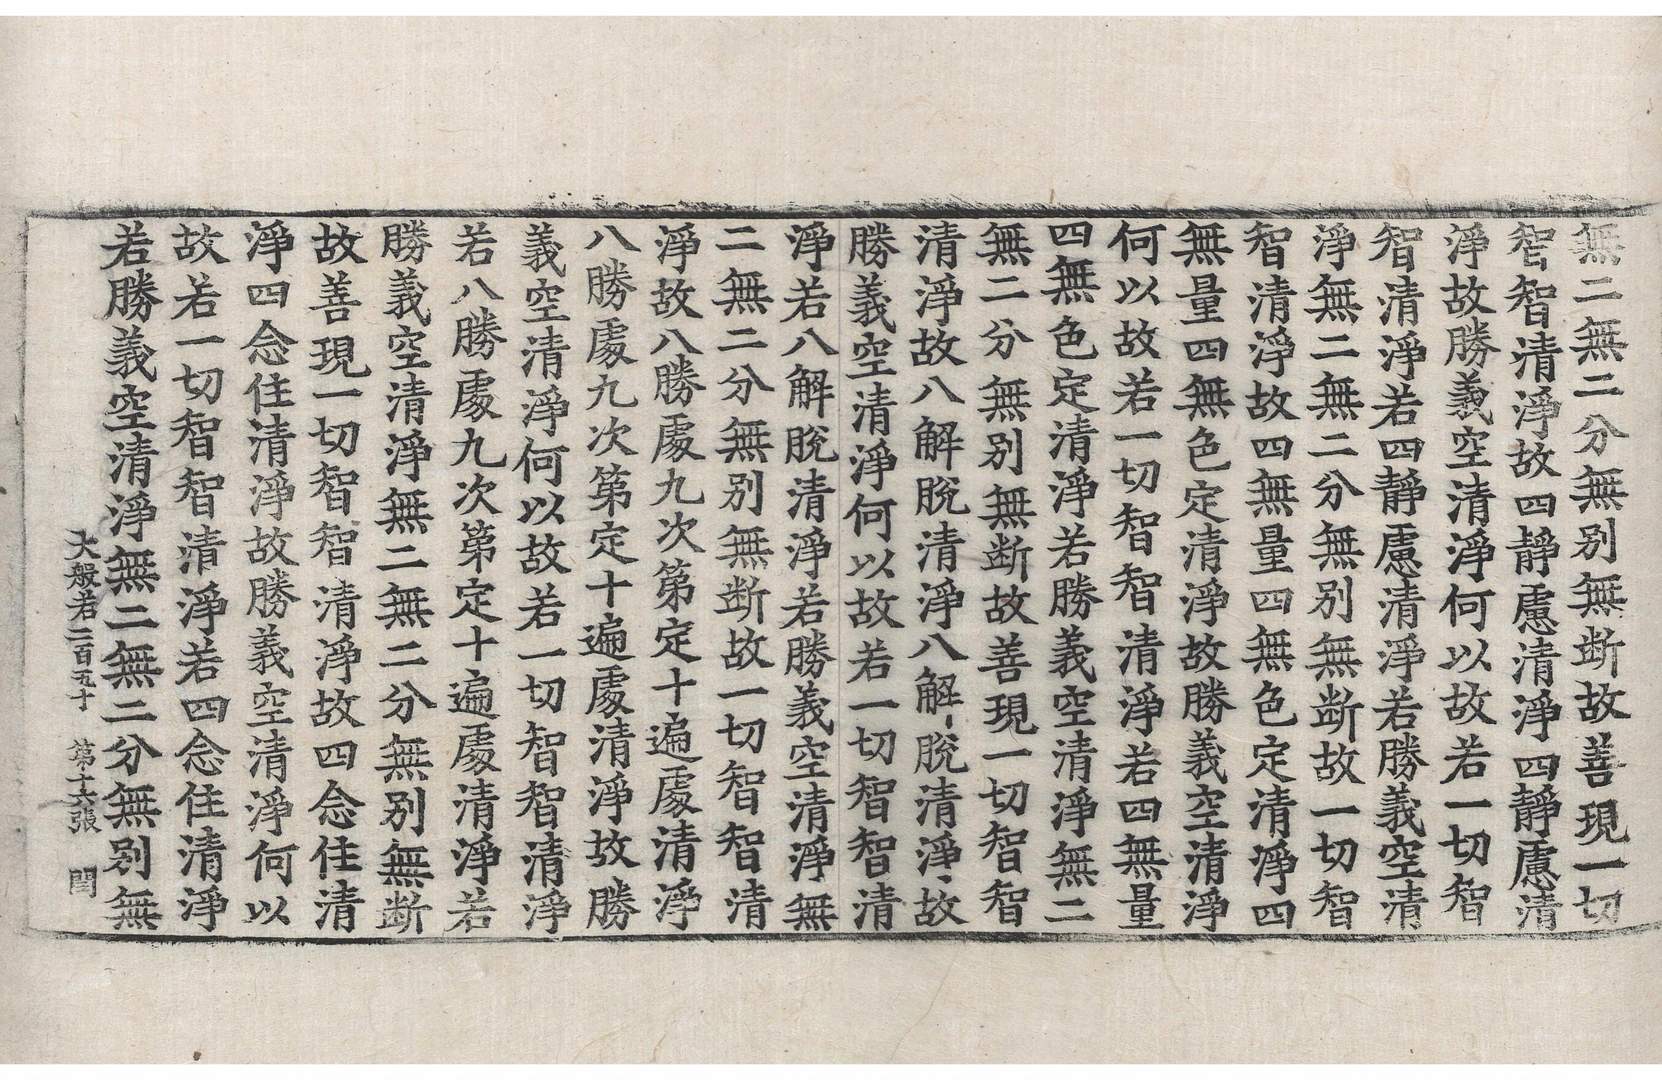 無二無二分無别無断故善現一切
智智清淨故四靜慮清淨四靜慮清
淨故勝義空清淨何以故若一切智
智清淨若四靜慮清淨若勝義空清
淨無二無二分無别無断故一切智
智清淨故四無量四無色定清淨四
無量四無色定清淨故勝義空清淨
何以故若一切智智清淨若四無量
四無色定清淨若勝義空清淨無二
無二分無别無断故善現一切智智
清淨故八解脫清淨八解脫清淨故
勝義空清淨何以故若一切智智清
淨若八解脫清淨若勝義空清淨無
二無二分無别無断故一切智智清
淨故八勝處九次第定十遍處清淨
八勝處九次第定十遍處清淨故勝
義空清淨何以故若一切智智清淨
若八勝處九次第定十遍處清淨若
勝義空清淨無二無二分無别無断
故善現一切智智清淨故四念住清
淨四念住清淨故勝義空清淨何以
故若一切智智清淨若四念住清淨
若勝義空清淨無二無二分無别無
大般若二百五十 第十六張 閏